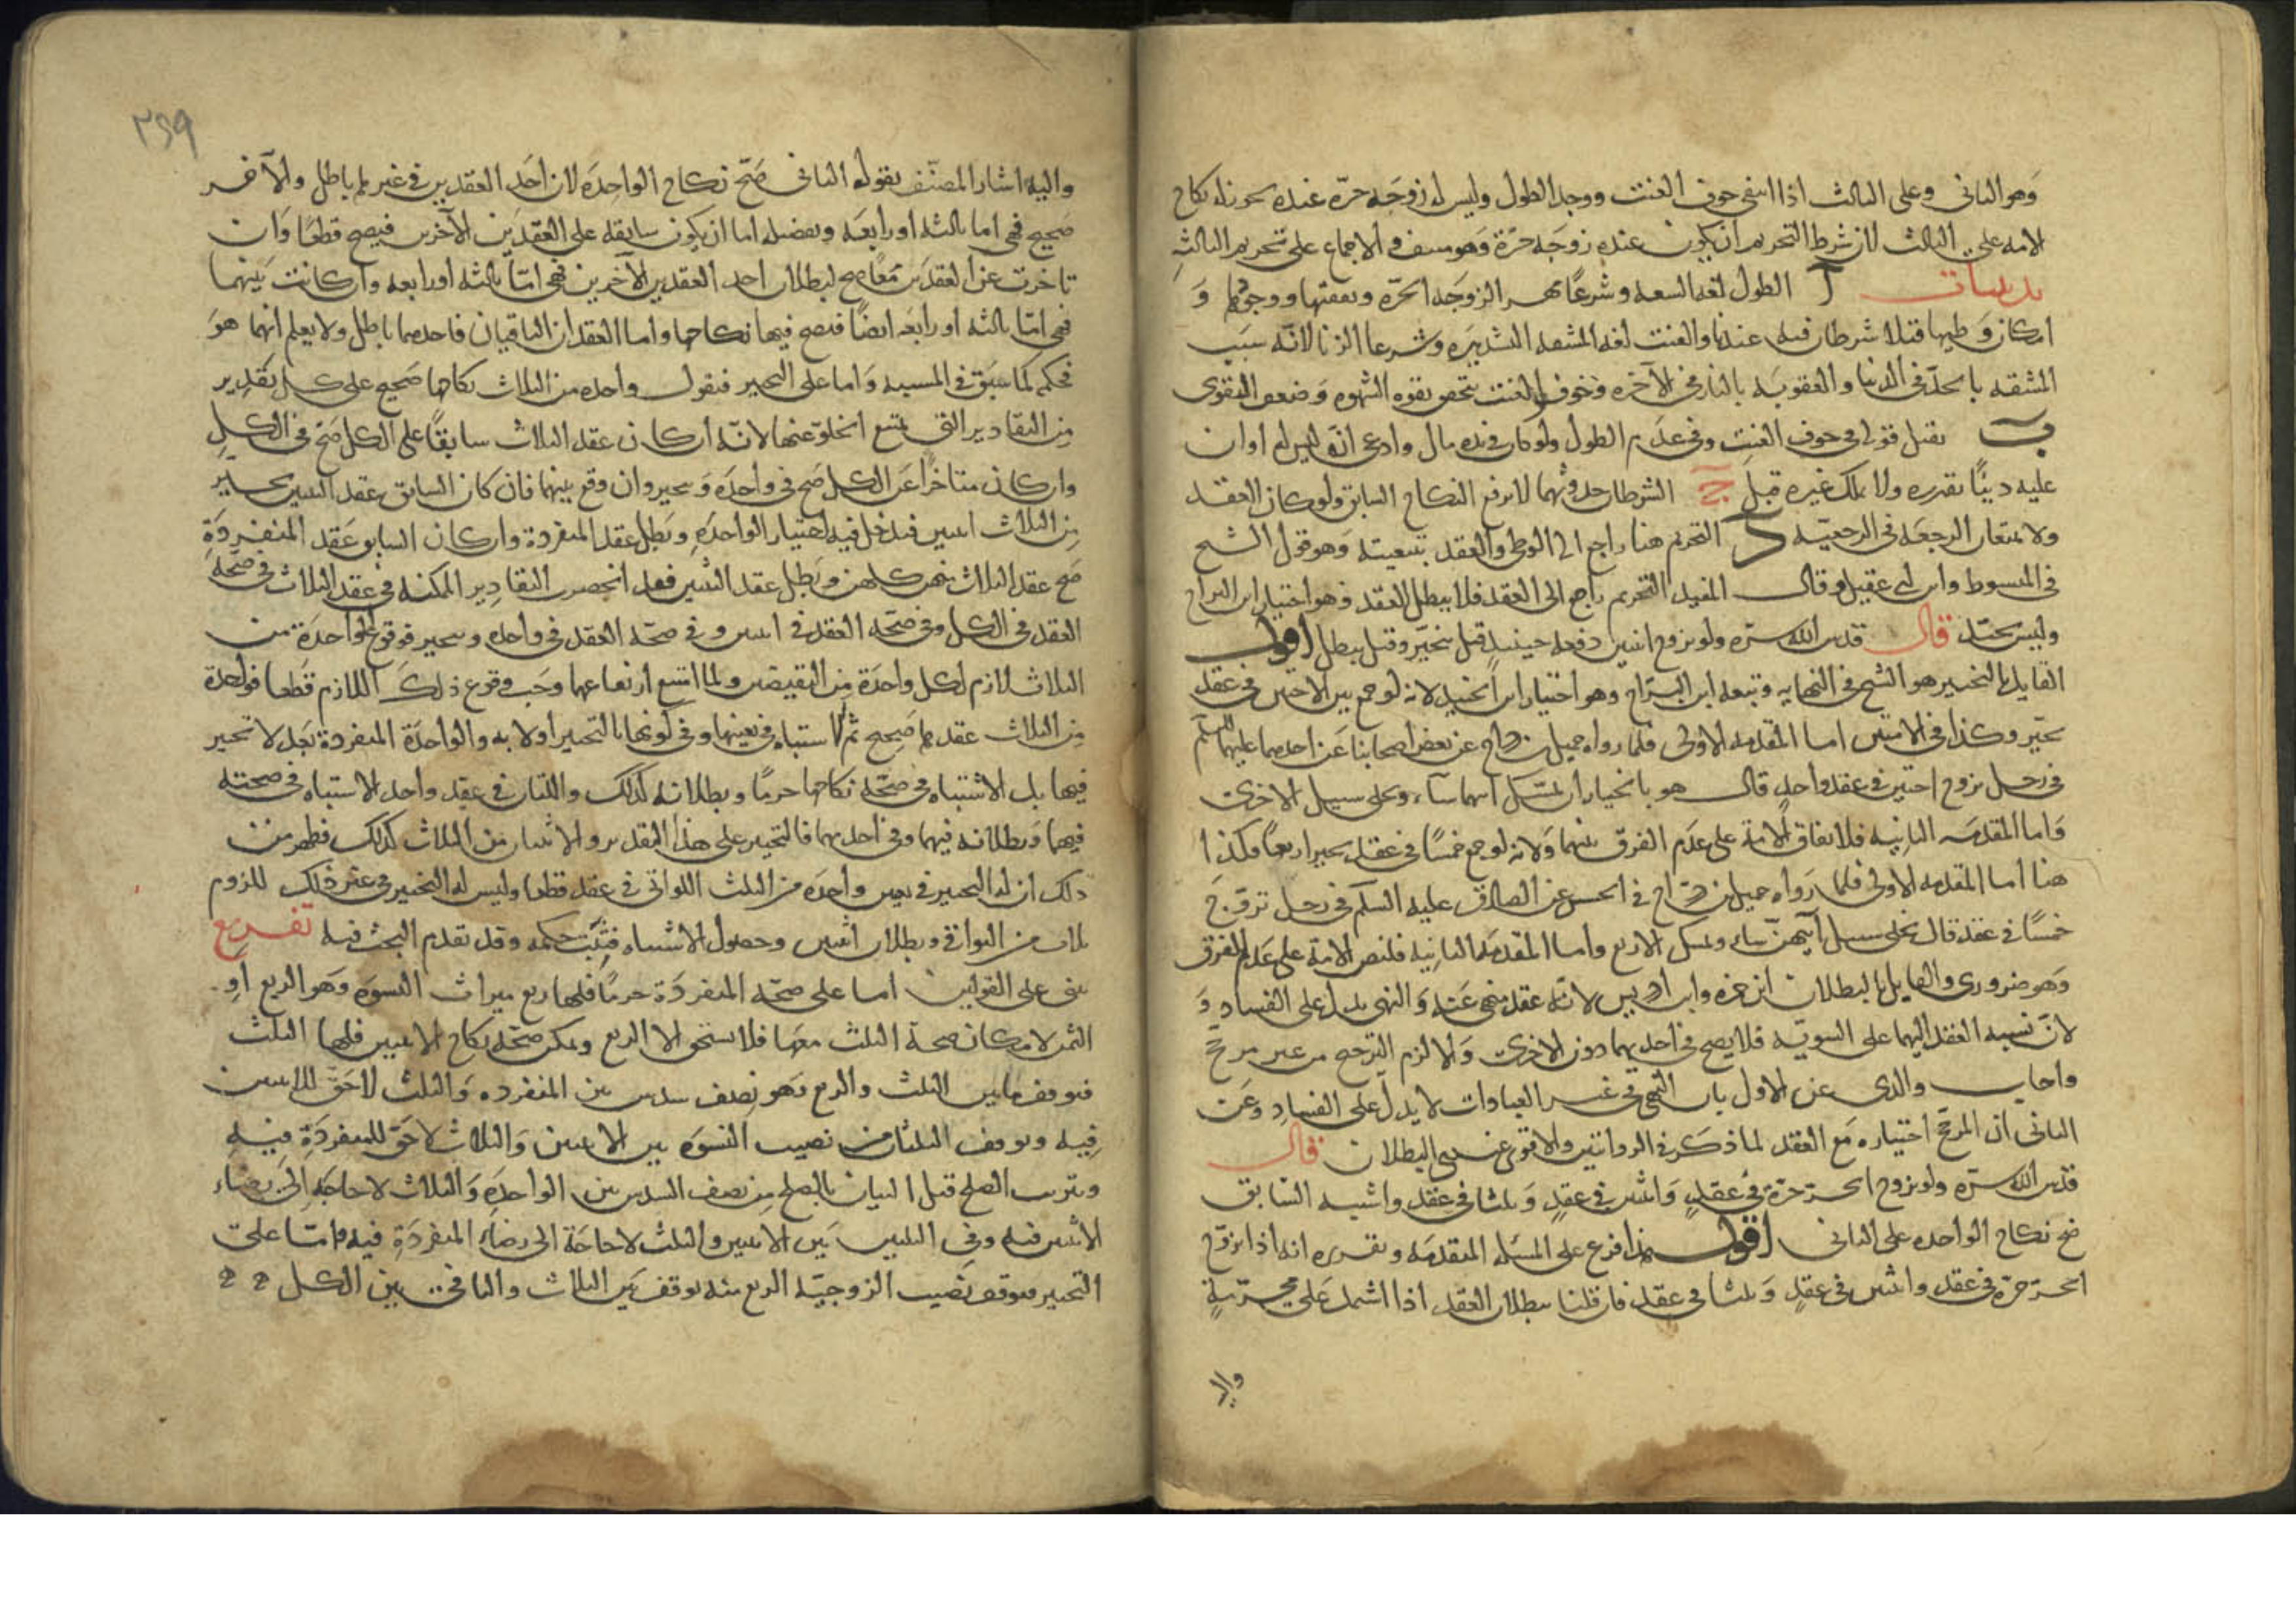 وهو الثاني وعلى الثالث اذا انتفى خوف العنت ووجد الطول وليس له زوجة حرّة عنده يجوز له نكاح
الامة على الثالث لان شرط التحريم ان يكون عنده زوجة حرّة وهو منتف والاجماع على تحريم الثالثة
تذنيبات آ الطول لغة السعة وشرعًا مهر الزوجة الحرّة ونفقتها ووجودها و
امكان وطيها قبلا شرطان فيه عندنا والعنت لغة المشقة الشديدة وشرعا الزنا لانّه سبب
المشقة بالحدّ في الدنيا والعقوبة بالنار في الآخرة وخوف العنت يتحقق بقوة الشهوة وضعف التقوى
ب يقبل قوله في خوف العنت وفي عدم الطول ولو كان في يده مال وادعى انّه ليس له او ان
عليه دينًا بقدره ولا يملك غيره قبل ج الشرطان حدوثهما لا يرفع النكاح السابق ولو كان العقد
ولا يمنعان الرجعة في الرجعيّة د التحريم هنا راجع الى الوطي والعقد بتبعيته وهو قول الشيخ
في المبسوط وابن ابي عقيل وقال المفيد التحريم راجع الى العقد فلا يبطل العقد وهو اختيار ابن البراج
وليس بجيّد قال قدس الله سرّه ولو تزوج اثنين دفعة حينئذ قيل يتخيّر وقيل يبطل اقول
القايل بالتخيير هو الشيخ في النهاية وتبعه ابن البرّاج وهو اختيار ابن الجنيد لانه لو جمع بين الاختين في عقد
تخيّر وكذا في الامتين اما المقدمة الاولى فلما رواه جميل بن دراج عن بعض اصحابنا عن احدهما عليهما السلم
في رجل تزوج اختين في عقد واحد قال هو بالخيار ان يمسك ايهما شآء ويخلي سبيل الاخرى
واما المقدمة الثانية فلاتفاق الامة على عدم الفرق بينهما ولانه لو جمع خمسًا في عقد تخير اربعا فكذا
هنا اما المقدمة الاولى فلما رواه جميل بن دراج في الحسن عن الصادق عليه السلم في رجل تزوّج
خمسًا في عقد قال يخلي سبيل ايّتهنّ شاء ويمسك الاربع واما المقدمة الثانية فلنص الامة على عدم الفرق
وهو ضروري والقايل بالبطلان ابن حمزه وابن ادريس لانّه عقد منهي عنه والنهي يدل على الفساد و
لانّ نسبة العقد اليهما على السويّة فلا يصح في احديهما دون الاخرى والا لزم الترجيح من غير مرجّح
واجاب والدي عن الاول بان النهي في غير العبادات لا يدلّ على الفساد وعن
الثاني ان المرجّح اختياره مع العقد لما ذكر في الروايتين والاقوى عندي البطلان قال
قدس الله سرّه ولو تزوج الحرّ حرّة في عقد واثنتين في عقد وثلثا في عقد واشتبه السابق
صح نكاح الواحدة على الثاني اقول هذا فرع على المسئلة المتقدمة وتقريره انه اذا تزوّج
الحرّ حرّة في عقد واثنتين في عقد وثلثا في عقد فان قلنا ببطلان العقد اذا اشتمل على محرّمة
والا
٢٤٩
واليه اشار المصنّف بقوله الثاني صحّ نكاح الواحدة لان احد العقدين في غيرها باطل والآخر
صحيح فهي اما ثالثة او رابعة وتفصيله اما ان يكون سابقة على العقدين الآخرين فيصح قطعًا وان
تاخرت عن العقدين معًا صح لبطلان احد العقدين الآخرين فهي امّا ثالثة او رابعة وان كانت بينهما
فهي امّا ثالثة او رابعة ايضًا فيصح فيها نكاحها واما العقدان الباقيان فاحدهما باطل ولا يعلم ايّهما هو
فحكمه كما سبق في المسئلة واما على التخيير فنقول واحدة من الثلاث نكاحها صحيح على كل تقدير
من التقادير التي يمتنع الخلوّ عنها لانّه ان كان عقد الثلاث سابقًا على الكل صح في الكل
وان كان متاخرًا عن الكل صح في واحدة وتخير وان وقع بينهما فان كان السابق عقد اثنتين تخيير
من الثلاث اثنتين فيدخل فيه اختيار الواحدة وبطل عقد المنفردة وان كان السابق عقد المنفردة
صح عقد الثلاث فيهن كلهن وبطل عقد الثنتين فقد انحصرت التقادير الممكنة في عقد الثلاث في صحة
العقد في الكل وفي صحة العقد في اثنتين وفي صحّة العقد في واحدة وتخير فوقوع الواحدة من
الثلاث لازم لكل واحدة من النقيضين ولما امتنع ارتفاعهما وجب وقوع ذلك اللازم قطعا فواحدة
من الثلاث عقدها صحيح ثم الاشتباه في تعينها وفي كونها بالتخيير اولا به والواحدة المنفردة بعد لا تخيير
فيها بل الاشتباه في صحّة نكاحها حرمًا وبطلانه كذلك واللتان في عقد واحد الاشتباه في صحته
فيهما وبطلانه فيهما وفي احديهما فالتخيير على هذا التقدير والاثنتان من الثلاث كذلك فظهر من
ذلك ان له التخيير في تعيين واحدة من الثلث اللواتي في عقد قطعا وليس له التخيير في غير ذلك للزوم
ثلاث من البواقي وبطلان اثنتين وحصول الاشتباه فيثبت حكمه وقد تقدم البحث فيه تفريع
يبنى على القولين اما على صحّة المنفردة حرمًا فلها ربع ميراث النسوة وهو الربع او
الثمن لامكان صحة الثلث معها فلا يستحق الا الربع ويمكن صحّة نكاح الاثنتين فلها الثلث
فيوقف ما بين الثلث والربع وهو نصف سدس بين المنفردة والثلث لا حقّ للاثنتين
فيه ويوقف الثلثان من نصيب النسوة بين الاثنتين والثلاث لا حق للمنفردة فيه
ويترتب الصلح قبل البيان بالصلح من نصف السدس بين الواحدة والثلاث لا حاجة الى رضاء
الاثنتين فيه وفي الثلثين بين الاثنتين والثلث لا حاجة الى رضاء المنفردة فيه وامّا على
التخيير فيوقف نصيب الزوجيّة الربع منه يوقف بين الثلاث والباقي بين الكل